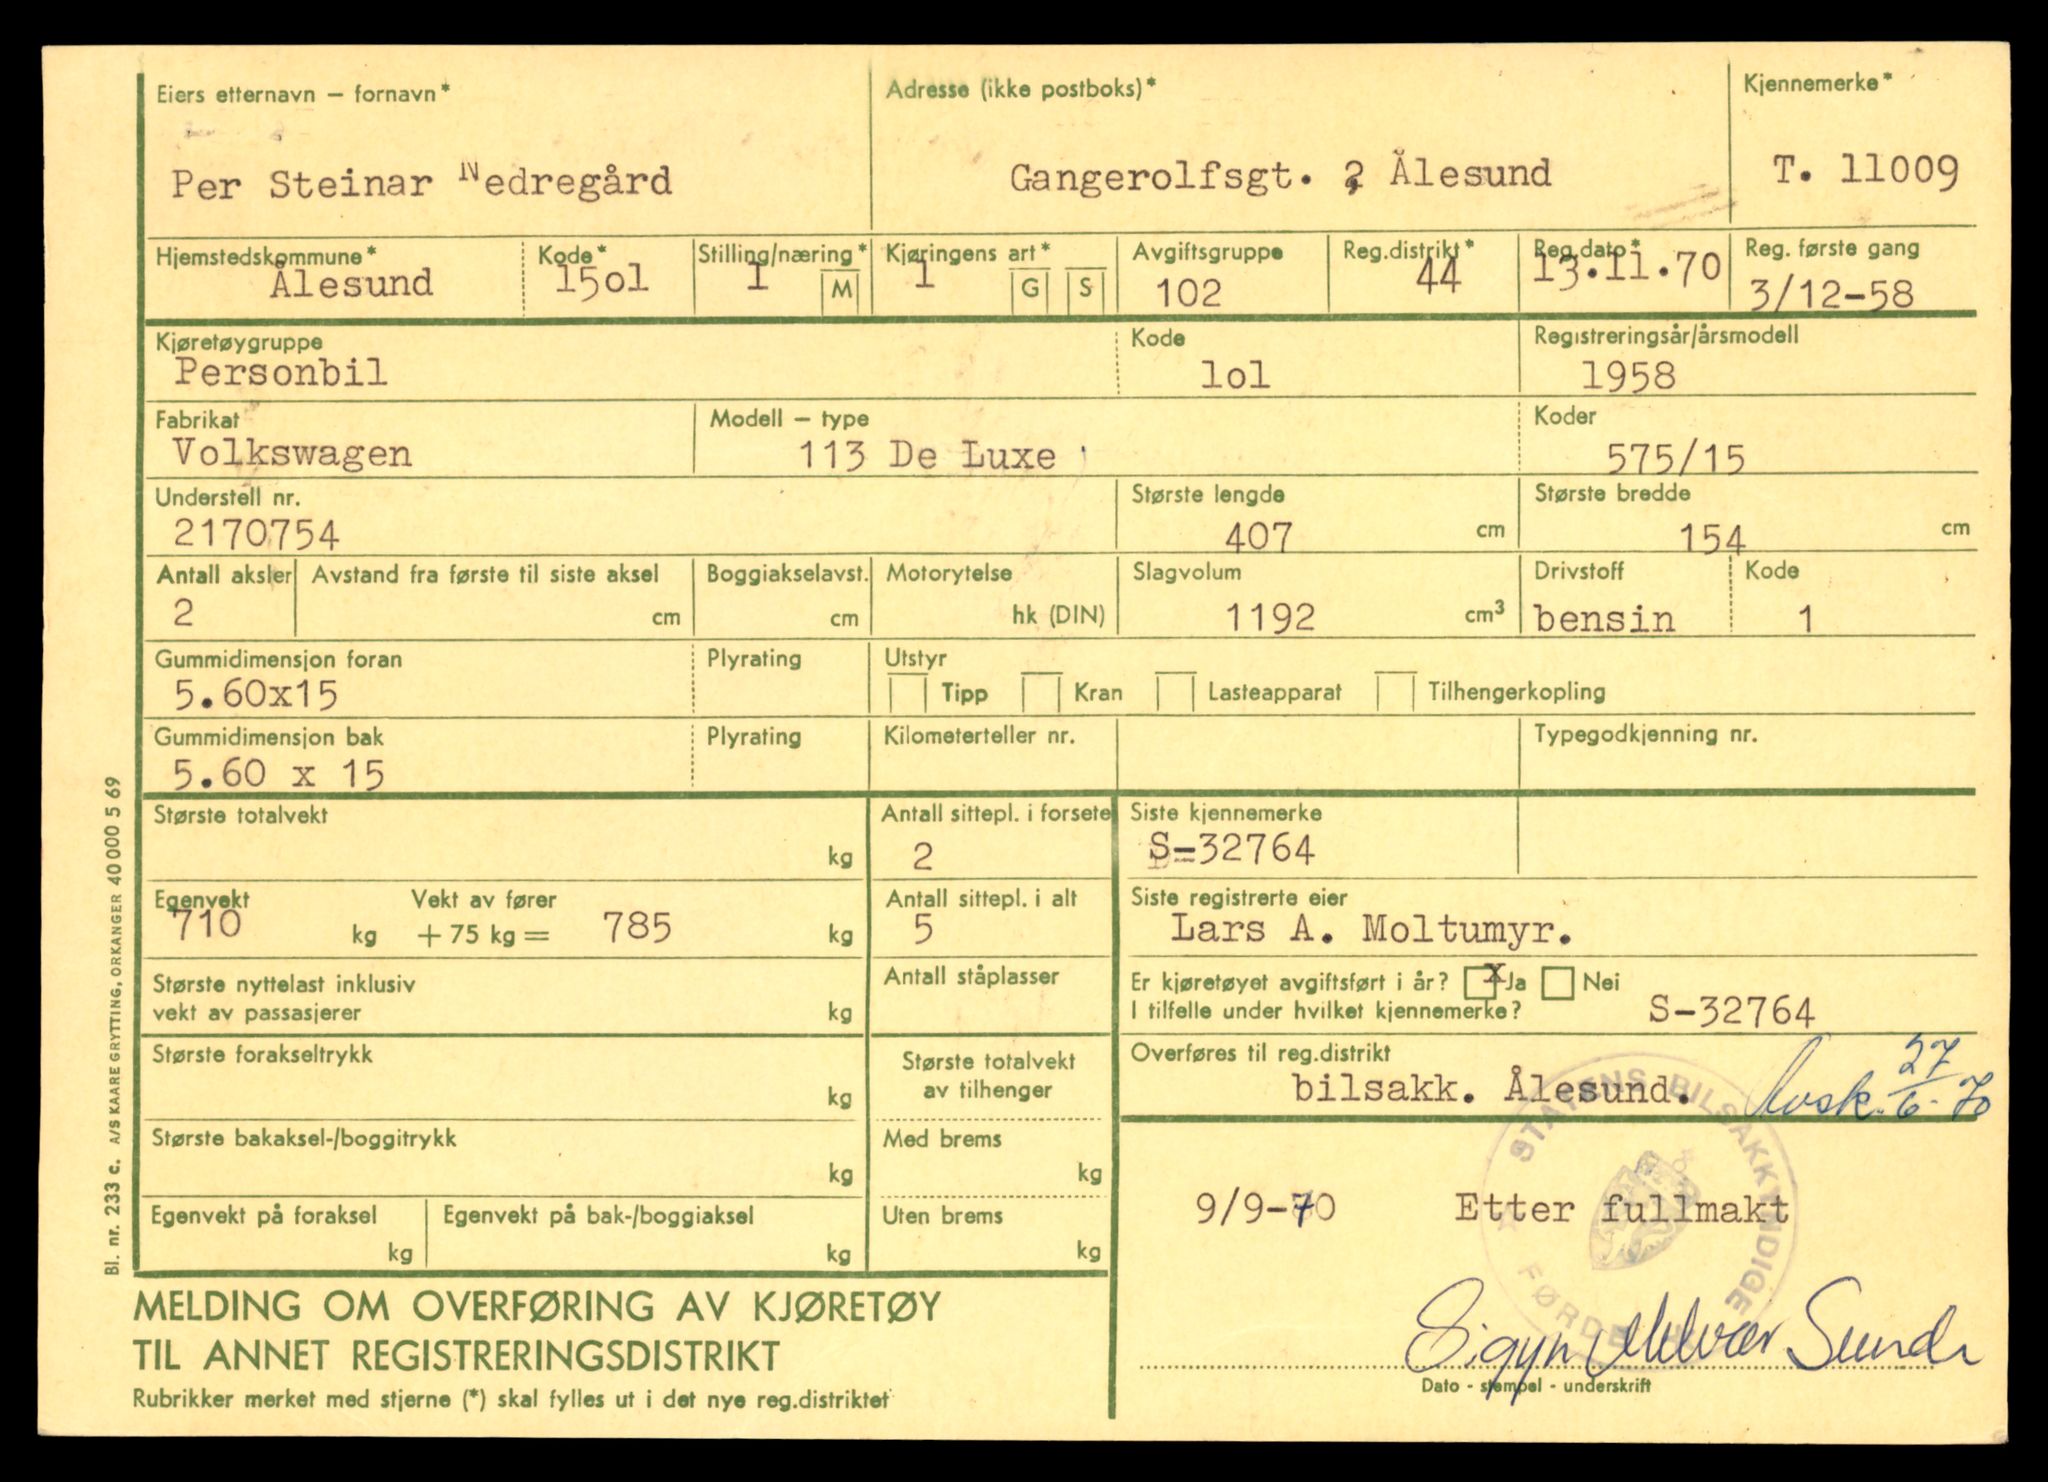 Eiers etternavn – fornavn*
Adresse (ikke postboks)*
Kjennemerke*
Per Steinar Nedregård
Gangerolfsgt. 2, Ålesund
T. 11009
Hjemstedskommune*
Kode*
Stilling/næring*
Kjøringens art*
Avgiftsgruppe
Reg.distrikt*
Reg.dato*
Reg. første gang
Ålesund
15o1
1
M
1
G
S
102
44
13.11.70
3/12-58
Kjøretøygruppe
Kode
Registreringsår/årsmodell
Personbil
lol
1958
Fabrikat
Modell – type
Koder
Volkswagen
113 De Luxe
575/15
Understell nr.
Største lengde
Største bredde
2170754
407 cm
154 cm
Antall aksler
Avstand fra første til siste aksel
Boggiakselavst.
Motorytelse
Slagvolum
Drivstoff
Kode
2
cm
cm
hk (DIN)
1192 cm³
bensin
1
Gummidimensjon foran
Plyrating
Utstyr
5.60x15
Tipp
Kran
Lasteapparat
Tilhengerkopling
Gummidimensjon bak
Plyrating
Kilometerteller nr.
Typegodkjenning nr.
5.60 x 15
Største totalvekt
kg
Antall sittepl. i forsete
2
Siste kjennemerke
S-32764
Egenvekt
Vekt av fører
710 kg + 75 kg = 785 kg
Antall sittepl. i alt
5
Siste registrerte eier
Lars A. Moltumyr.
Største nyttelast inklusiv
vekt av passasjerer
kg
Antall ståplasser
Er kjøretøyet avgiftsført i år? x Ja Nei
I tilfelle under hvilket kjennemerke? S-32764
Største forakseltrykk
kg
Største totalvekt
av tilhenger
Overføres til reg.distrikt
bilsakk. Ålesund.
Avsk. 27/6-70
Største bakaksel-/boggitrykk
kg
Med brems
kg
Egenvekt på foraksel
kg
Egenvekt på bak-/boggiaksel
kg
Uten brems
kg
9/9-70 Etter fullmakt
STATENS BILSAKKYNDIGE
FØRDE
Dato - stempel - underskrift
MELDING OM OVERFØRING AV KJØRETØY
TIL ANNET REGISTRERINGSDISTRIKT
Rubrikker merket med stjerne (*) skal fylles ut i det nye reg.distriktet
Bl. nr. 233 c. A/S KAARE GRYTTING, ORKANGER 40 000 5 69